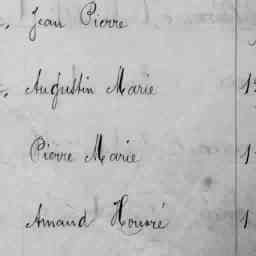 Jean Pierre
Augustin Marie
Pierre Marie
Amand Honoré